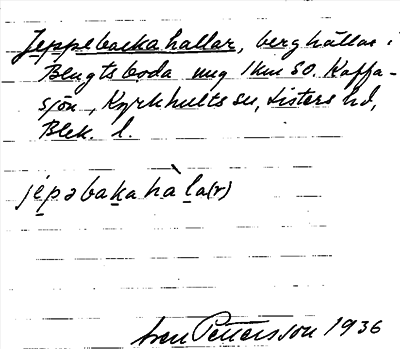 Jeppebackahallar, berghällar i
Bengtsboda mg 1 km SO. Kaffa-
sjön, Kyrkhults sn, Listers hd,
Blek. l.
jépəbakahàla(r)
Sven Pettersson 1936